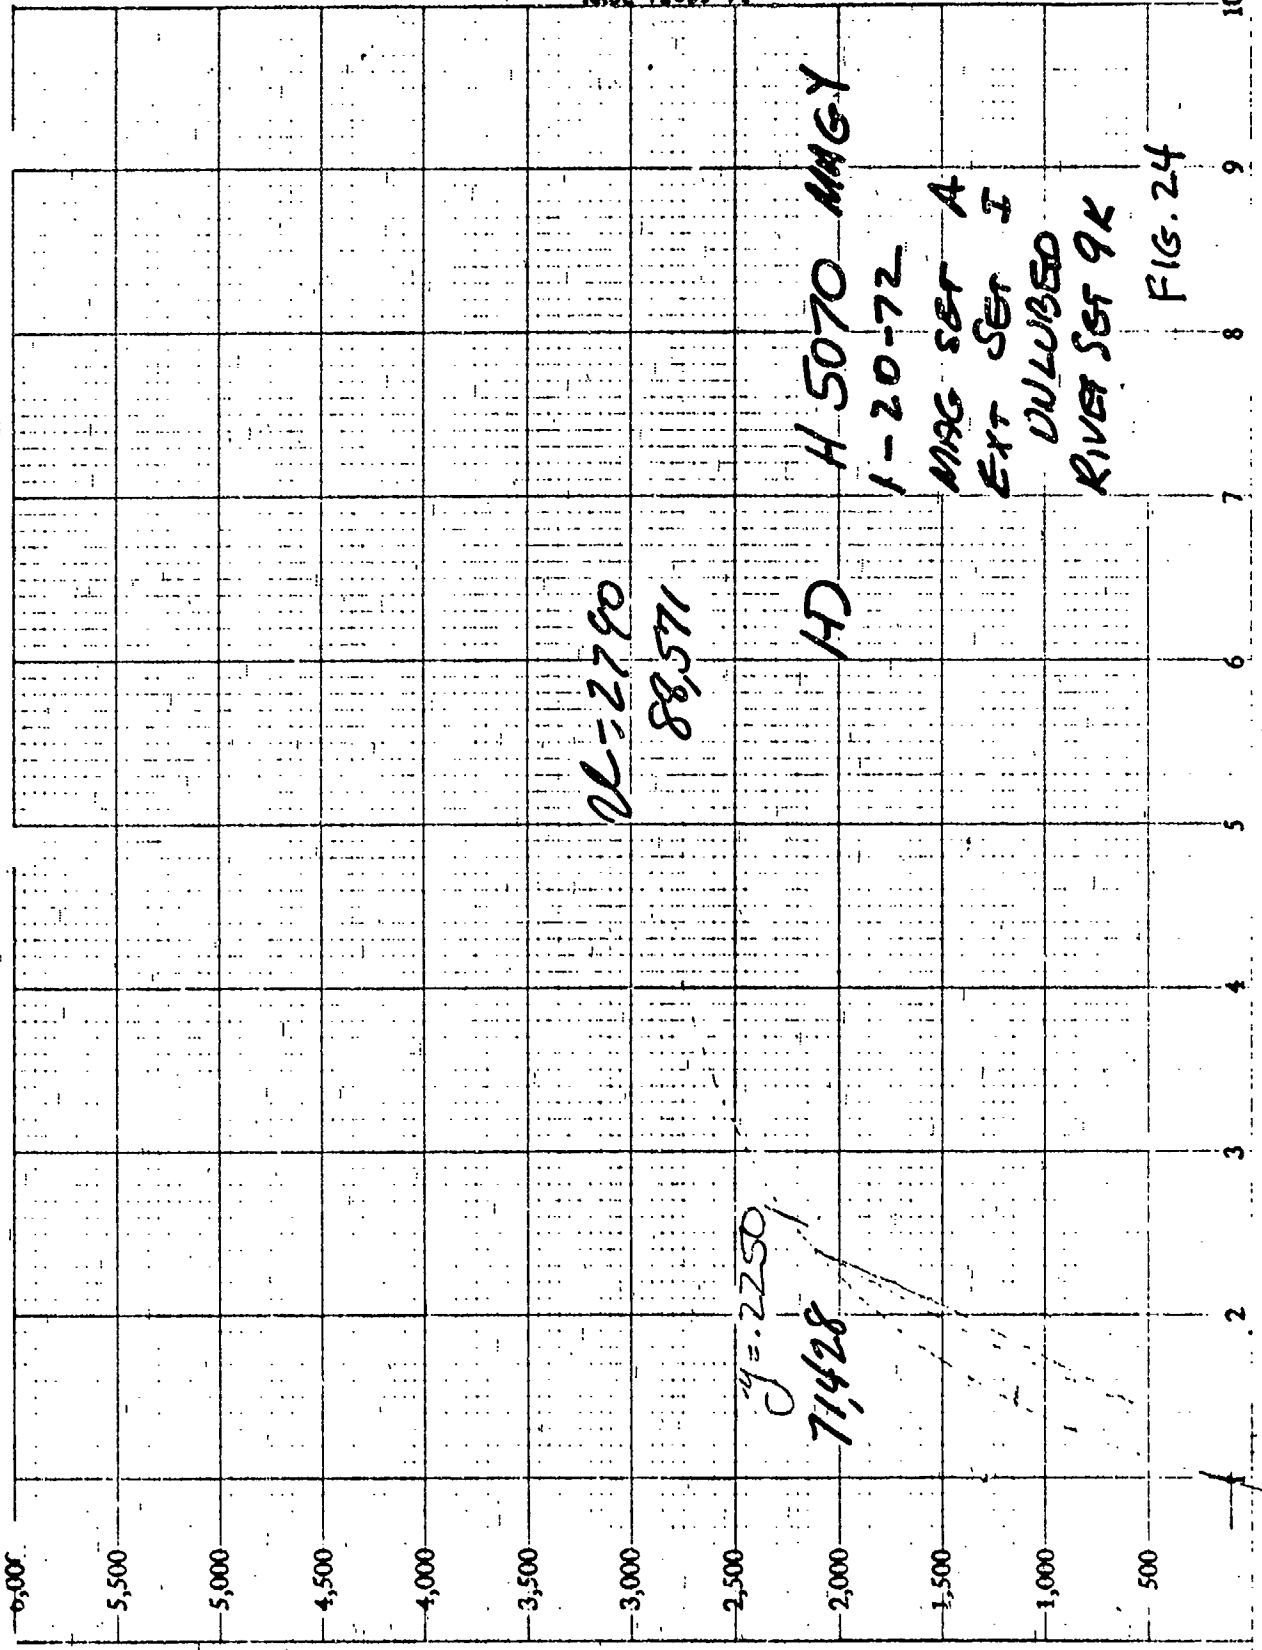 6,000
5,500
5,000
4,500
4,000
3,500
3,000
2,500
2,000
1,500
1,000
500
1
2
3
4
5
6
7
8
9
10
y=.2250
71,428
=2790
88,571
HD
H 5070 MAG Y
1-20-72
MAG SET A
EXT SET I
UNLUBED
RIVET SET 9K
FIG. 24